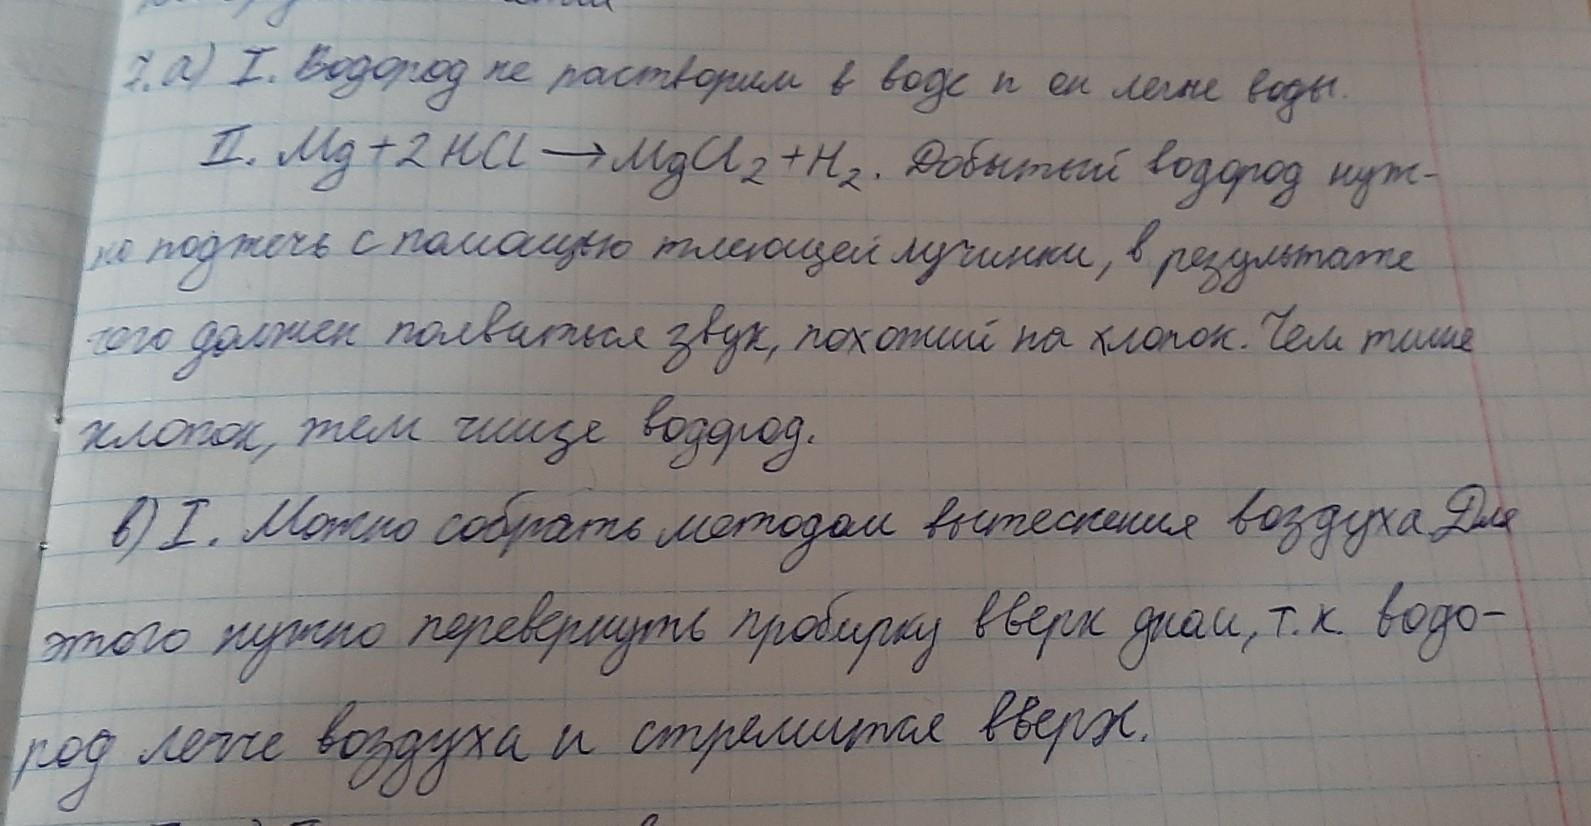 7. а) I. Водород не растворим в воде и он легче воды.
II. Mg + 2HCl → MgCl₂ + H₂. Добытый водород нуж-
но поджечь с помощью тлеющей лучинки, в результате
чего должен появиться звук, похожий на хлопок. Чем тише
хлопок, тем чище водород.
в) I. Можно собрать методом вытеснения воздуха. Для
этого нужно перевернуть пробирку вверх дном, т.к. водо-
род легче воздуха и стремится вверх.